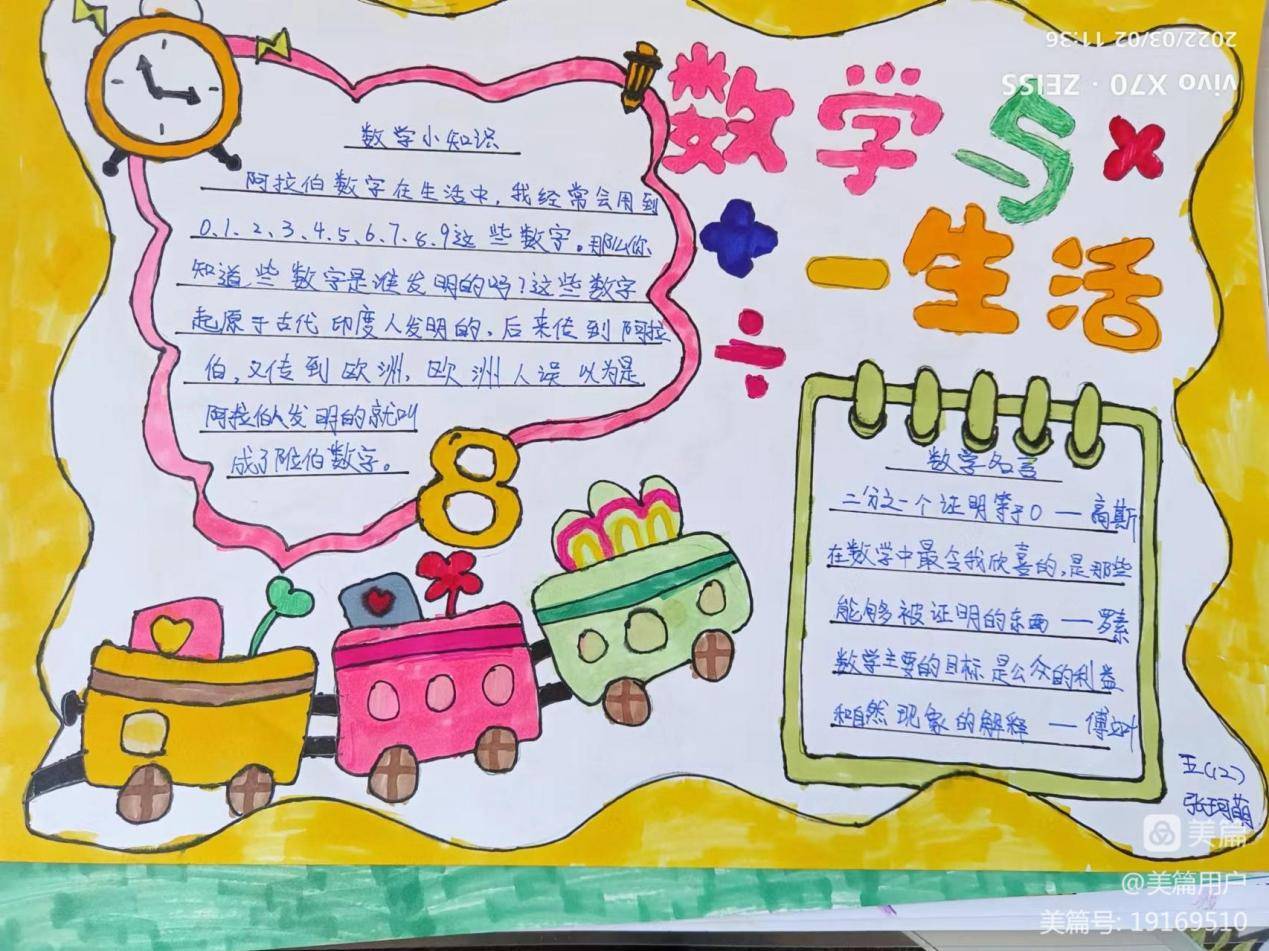 2022/03/02 11:36
vivo X70 · ZEISS
数学与
生活
数学小知识
阿拉伯数字在生活中，我经常会用到
0、1、2、3、4、5、6、7、8、9这些数字。那么你
知道些数字是谁发明的吗？这些数字
起原于古代印度人发明的，后来传到阿拉
伯，又传到欧洲，欧洲人误以为是
阿拉伯人发明的就叫
成了阿拉伯数字。
8
数学名言
二分之一个证明等于0 — 高斯
在数学中最令我欣喜的，是那些
能够被证明的东西 — 罗素
数学主要的目标是公众的利益
和自然现象的解释 — 傅立叶
五(12)
张珂萌
美篇
@美篇用户
美篇号: 19169510